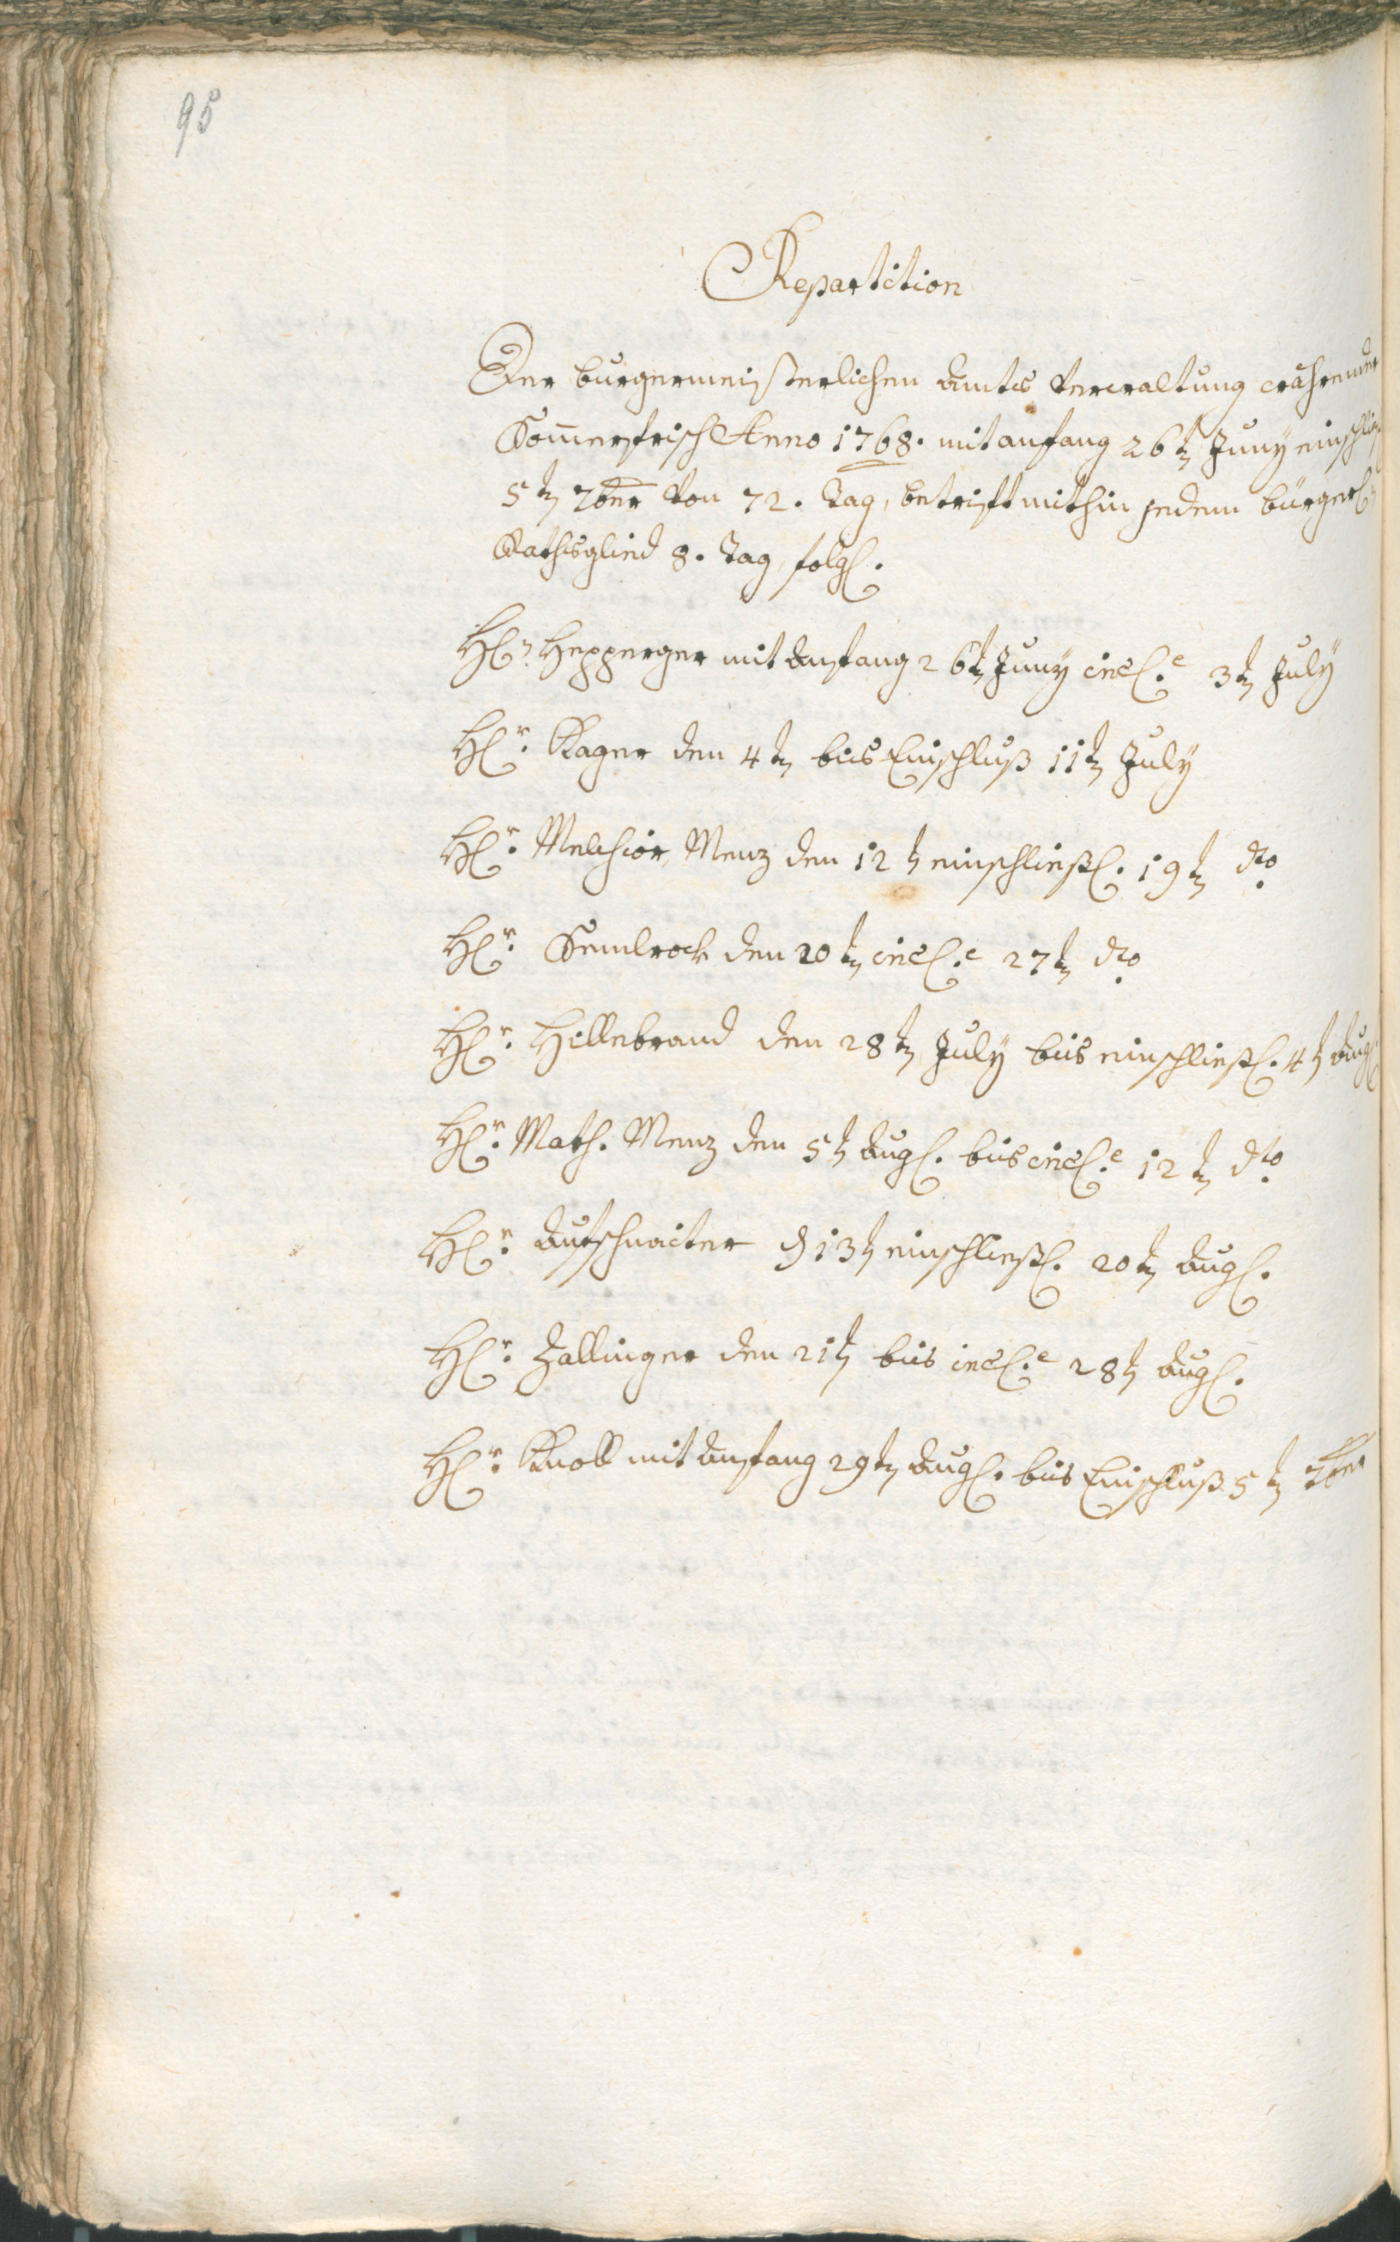 95
Repartition
Der burgermeisterlichen Amts Verwaltung während
Som̅erfrisch Anno 1768. mit anfang 26tn Juny einschließ
5tn 7ber von 72. Tag, betrifft mithin jedem burgerl.
Rathsglied 8. Tag, folgl.
Hl. Hepperger mit Anfang 26tn Juny incl.e 3tn July
Hlr. Rager den 4tn bis Einschluß 11tn July
Hlr. Melchior Menz den 12t einschließl. 19tn dto.
Hlr. Semlrock den 20tn incl.e 27tn dto.
Hlr. Hillebrand den 28tn July bis einschließl. 4t Augl.
Hlr. Math. Menz den 5t Augl. bis incl.e 12tn dto.
Hlr. Aufschnaiter d 13t einschließl. 20tn Augl.
Hlr. Zallinger den 21t bis incl.e 28t Augl.
Hlr. Knoll mit Anfang 29tn Augl. bis Einschluß 5tn 7ber